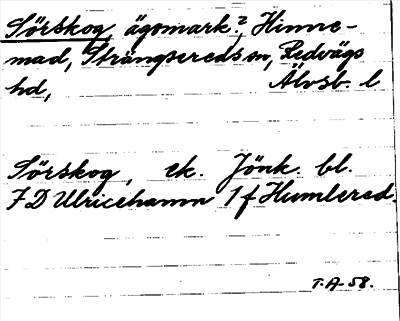 Sörskog, ägomark?, Hinne-
mad, Strängsereds sn, Redvägs
hd, Älvsb. l
Sörskog, ek. Jönk. bl.
7 D Ulricehamn 1 f Humlered.
T.A-58.